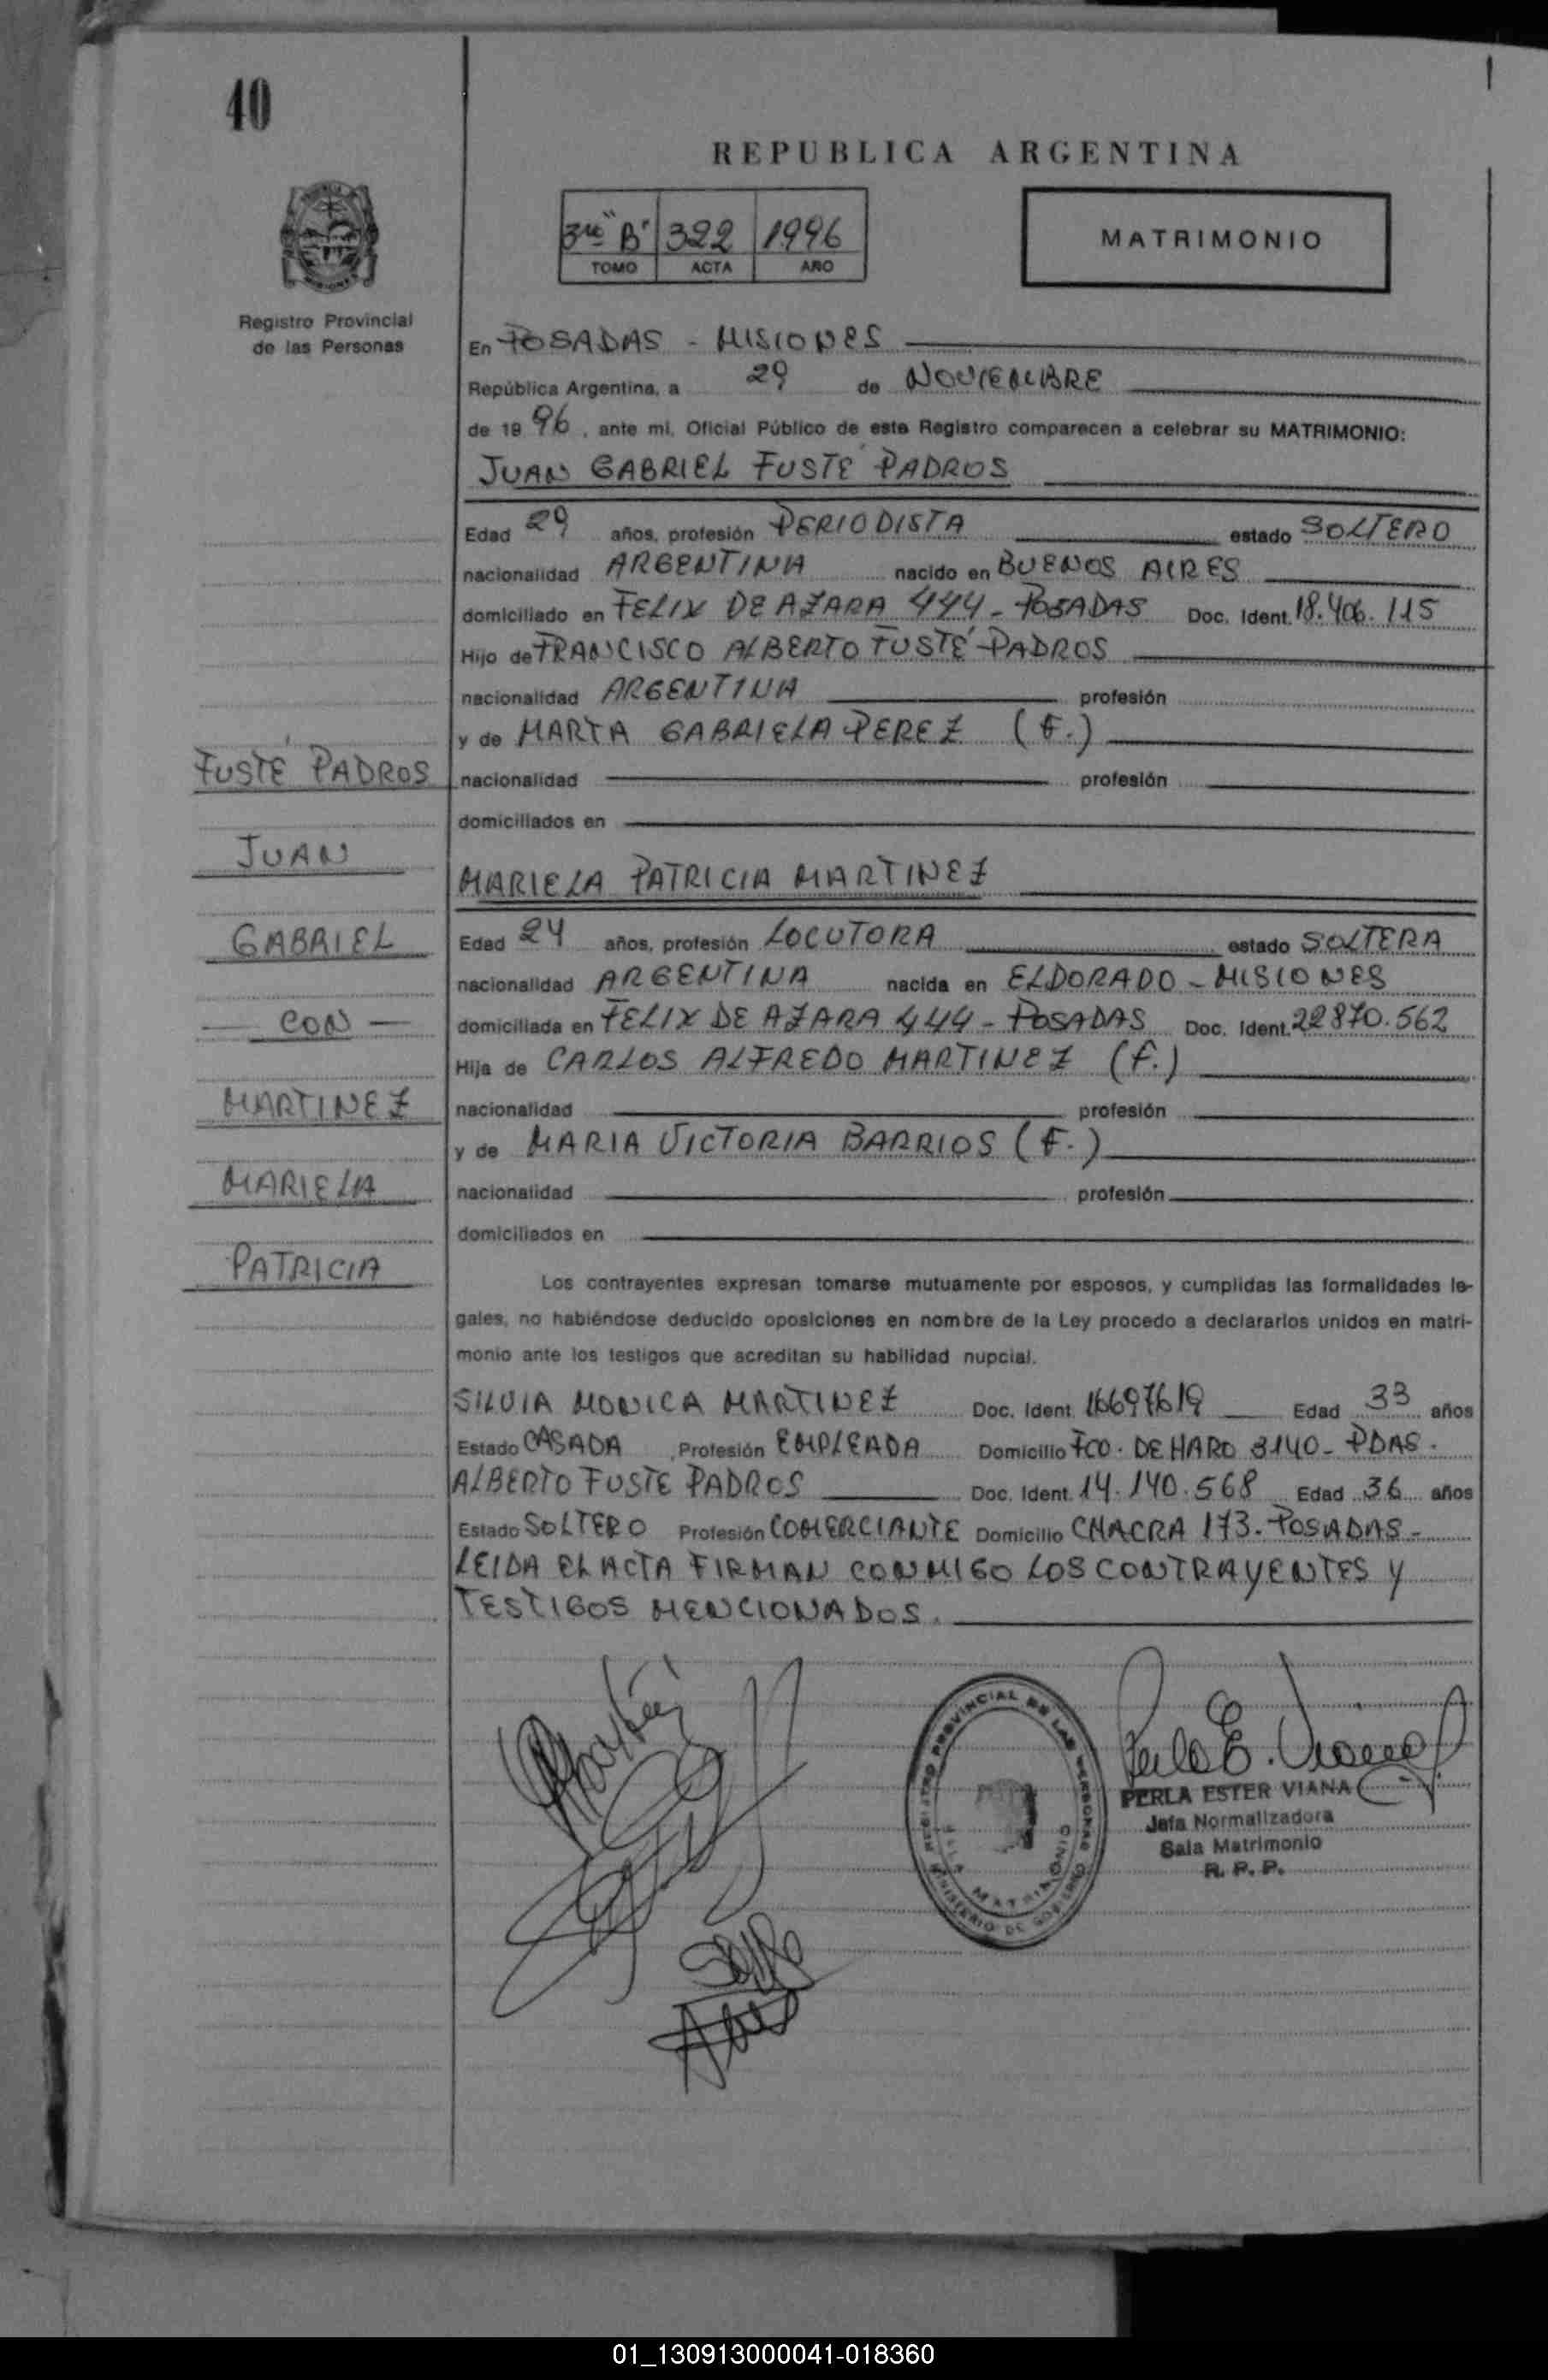 40
REPUBLICA ARGENTINA
3ro "B" 322 1996
TOMO ACTA AÑO
MATRIMONIO
Registro Provincial
de las Personas
En POSADAS - MISIONES
República Argentina, a 29 de NOVIEMBRE
de 1996, ante mi, Oficial Público de este Registro comparecen a celebrar su MATRIMONIO:
JUAN GABRIEL FUSTÉ PADROS
Edad 29 años, profesión PERIODISTA estado SOLTERO
nacionalidad ARGENTINA nacido en BUENOS AIRES
domiciliado en FELIX DE AZARA 444 - POSADAS Doc. Ident. 18.406.115
Hijo de FRANCISCO ALBERTO FUSTÉ PADROS
nacionalidad ARGENTINA profesión
y de MARTA GABRIELA PEREZ (F.)
nacionalidad profesión
domiciliados en
MARIELA PATRICIA MARTINEZ
Edad 24 años, profesión LOCUTORA estado SOLTERA
nacionalidad ARGENTINA nacida en ELDORADO - MISIONES
domiciliada en FELIX DE AZARA 444 - POSADAS Doc. Ident. 22870.562
Hija de CARLOS ALFREDO MARTINEZ (F.)
nacionalidad profesión
y de MARIA VICTORIA BARRIOS (F.)
nacionalidad profesión
domiciliados en
FUSTÉ PADROS
JUAN
GABRIEL
— CON —
MARTINEZ
MARIELA
PATRICIA
Los contrayentes expresan tomarse mutuamente por esposos, y cumplidas las formalidades le-
gales, no habiéndose deducido oposiciones en nombre de la Ley procedo a declararlos unidos en matri-
monio ante los testigos que acreditan su habilidad nupcial.
SILVIA MONICA MARTINEZ Doc. Ident. 16697619 Edad 33 años
Estado CASADA Profesión EMPLEADA Domicilio FCO. DE HARO 3140 - PDAS.
ALBERTO FUSTE PADROS Doc. Ident. 14.140.568 Edad 36 años
Estado SOLTERO Profesión COMERCIANTE Domicilio CHACRA 173 - POSADAS -
LEIDA EL ACTA FIRMAN CONMIGO LOS CONTRAYENTES Y
TESTIGOS MENCIONADOS.
REGISTRO PROVINCIAL DE LAS PERSONAS
MINISTERIO DE GOBIERNO
Perla E. Viana
PERLA ESTER VIANA
Jefa Normalizadora
Sala Matrimonio
R. P. P.
01_130913000041-018360